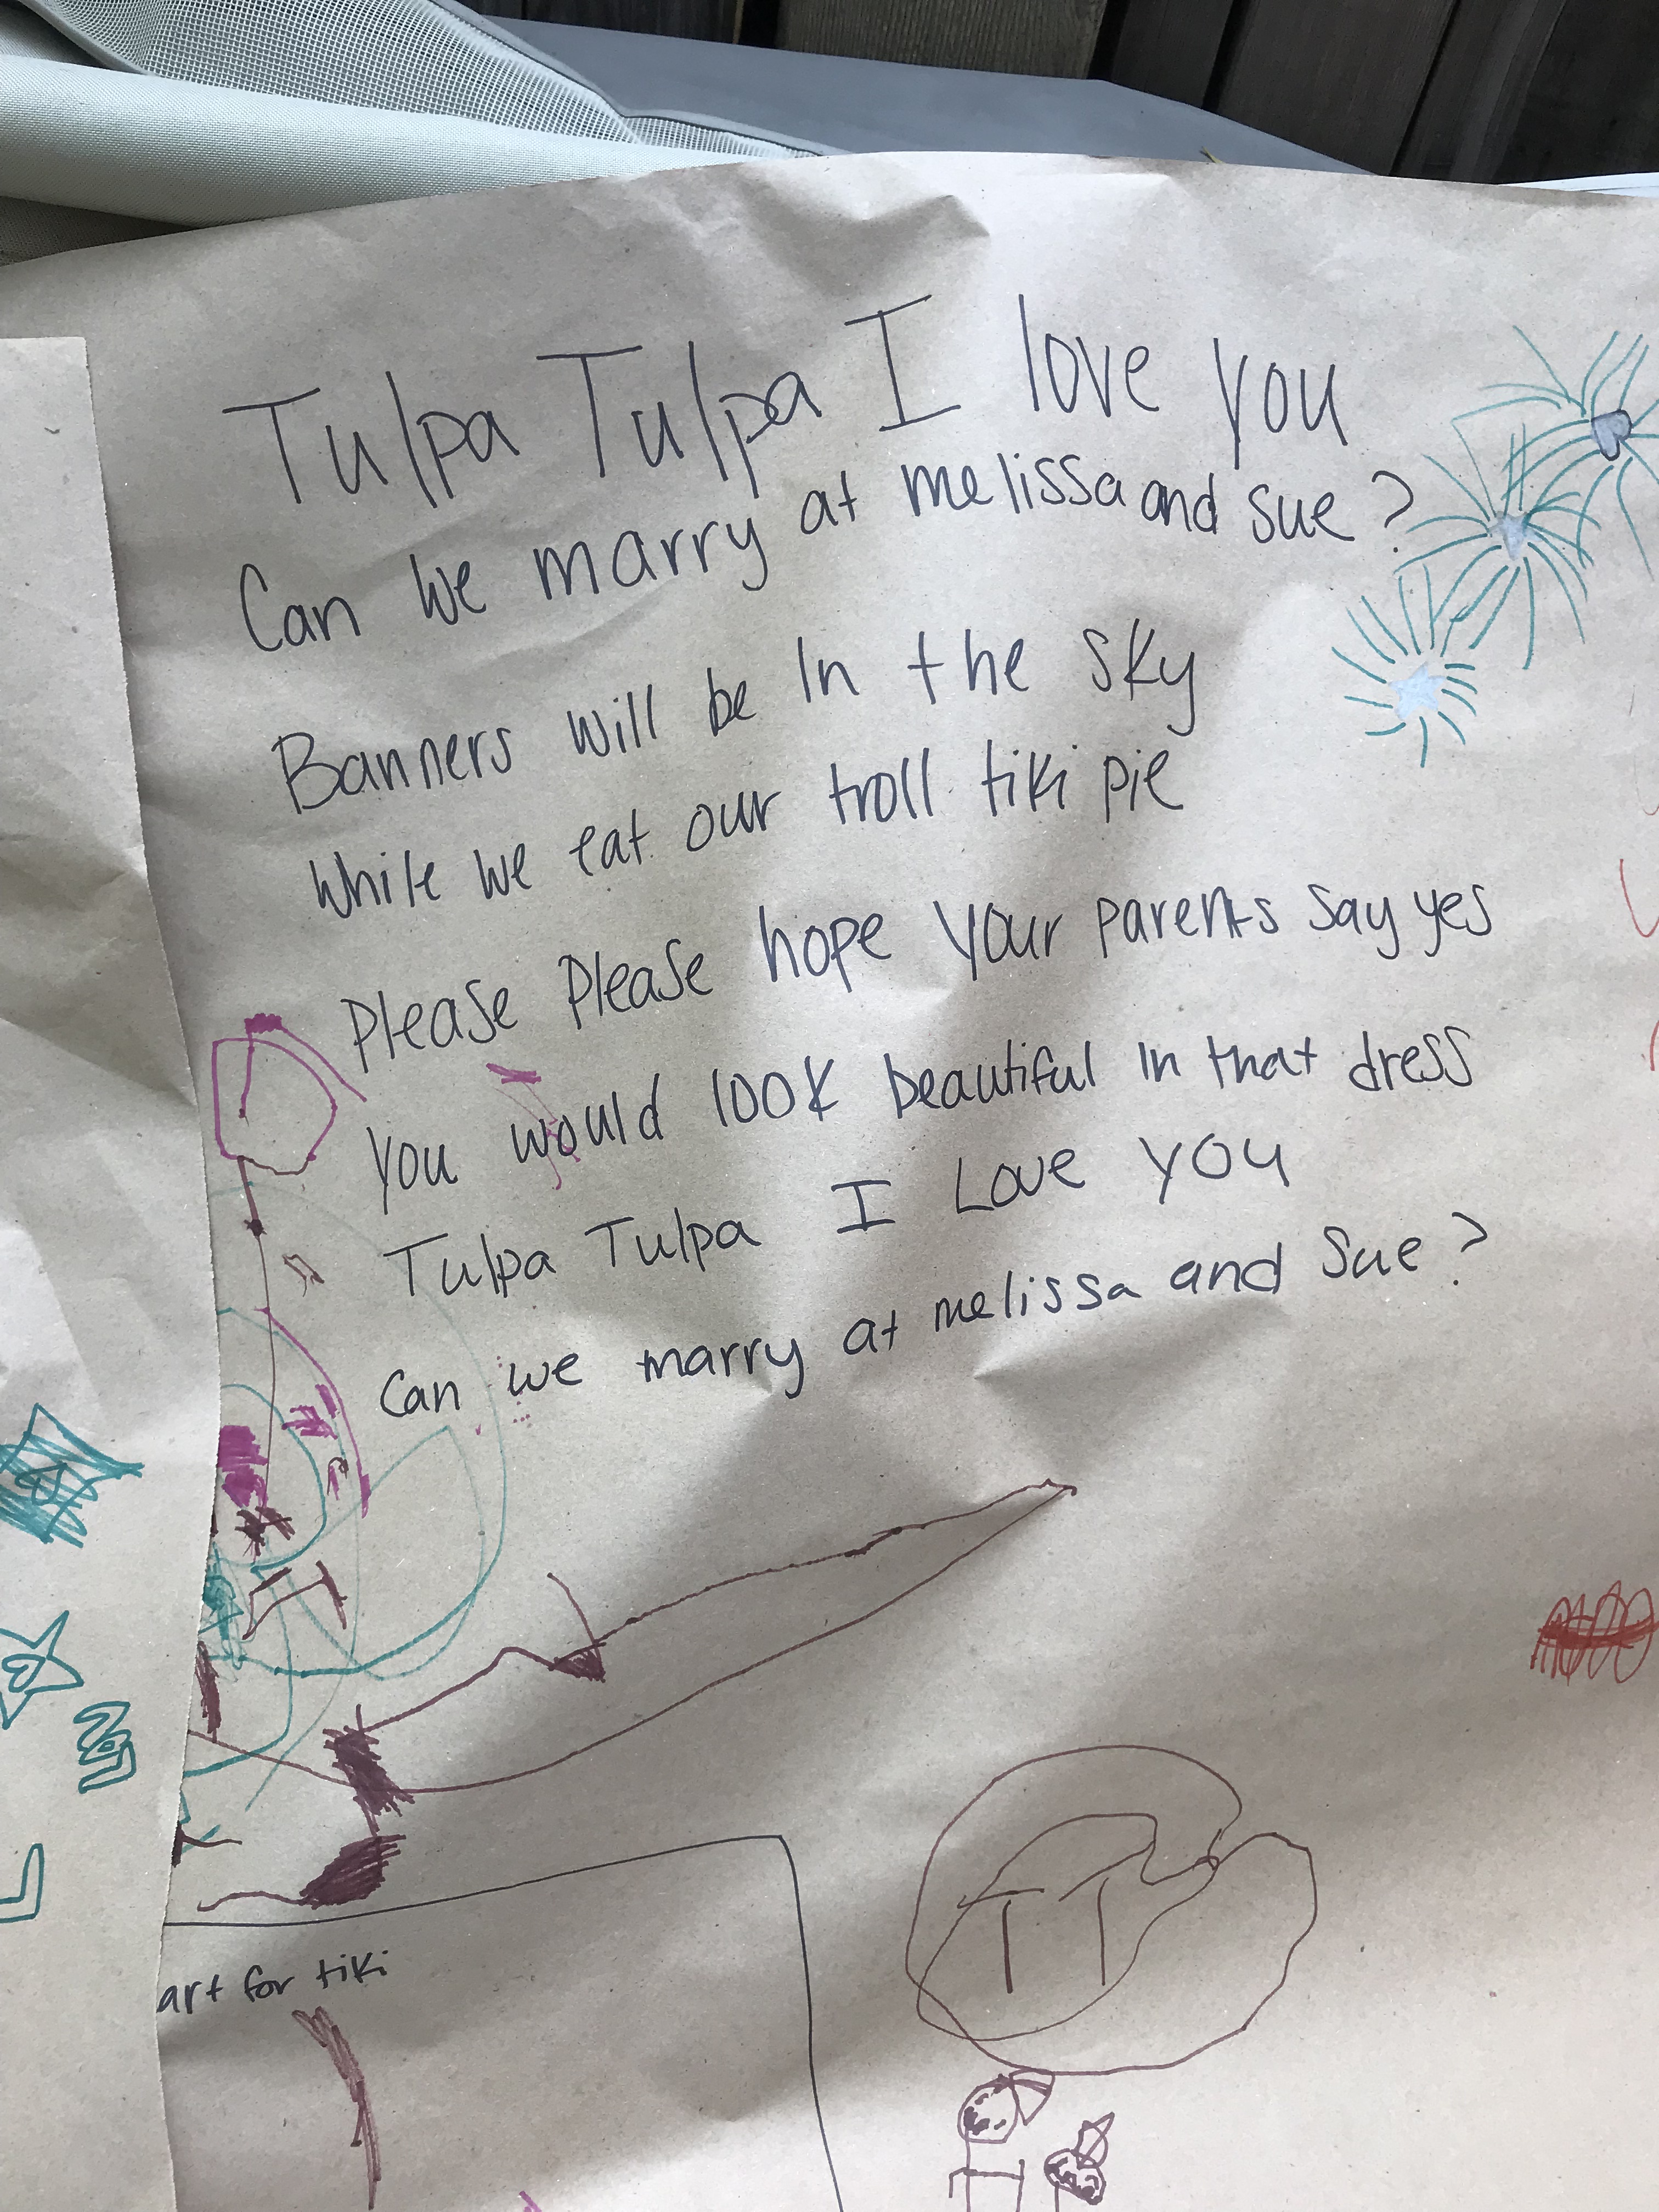 Tulpa Tulpa I love you
Can we marry at melissa and sue?
Banners will be In the sky
While we eat our troll tiki pie
Please Please hope your parents say yes
You would look beautiful In that dress
Tulpa Tulpa I Love you
Can we marry at melissa and Sue?
art for tiki
TT
L